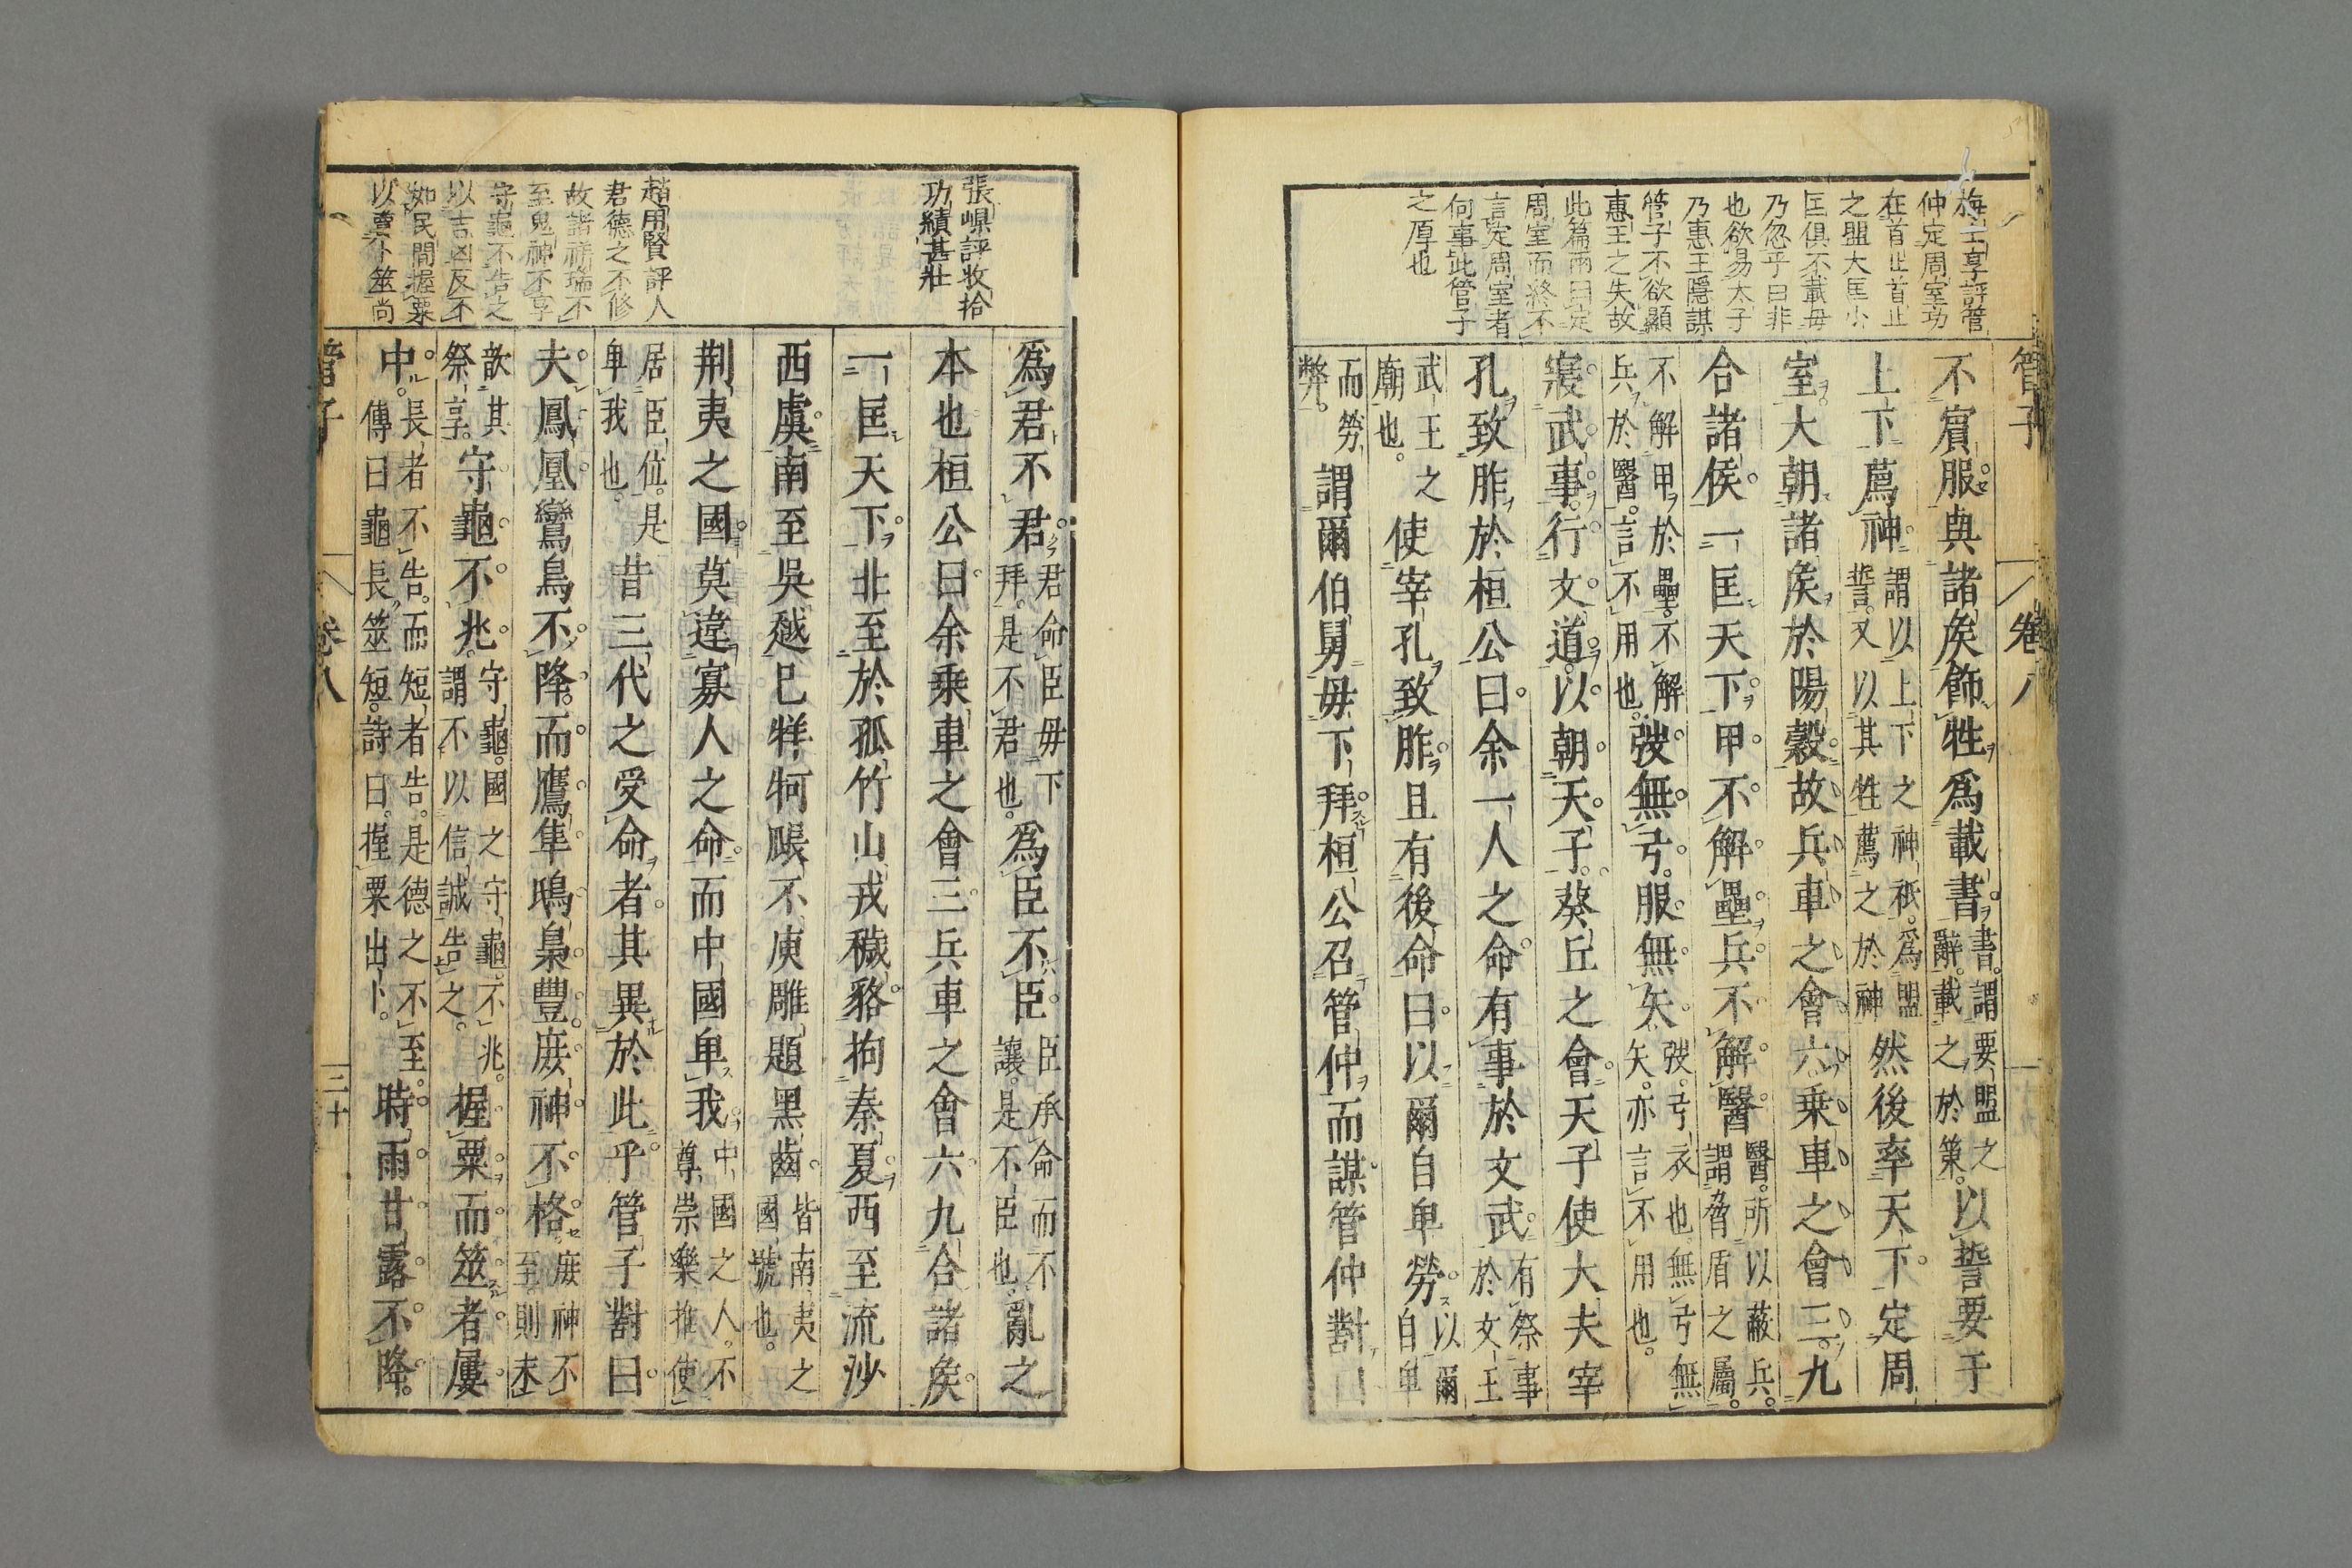 管子
卷八
梅士享評管
仲定周室功
在首止首止
之盟大匡小
匡俱不載毋
乃忽乎曰非
也欲易太子
乃惠王隱謀
管子不欲顯
惠王之失故
此篇兩曰定
周室而終不
言定周室者
何事此管子
之厚也
不賔服與諸矦飾牲爲載書書謂要盟之辭載之於策以誓要于
上下薦神謂以上下之神祇爲盟誓又以其牲薦之於神然後率天下定周
室大朝諸矦於陽穀故兵車之會六乗車之會三九
合諸侯一匡天下甲不解壘兵不解醫醫所以蔽兵謂脅盾之屬
不解甲於壘不解兵於醫言不用也弢無弓服無矢弢弓衣也無弓無矢亦言不用也
寝武事行文道以朝天子葵丘之會天子使大夫宰
孔致胙於桓公曰余一人之命有事於文武有祭事於文王
武王之廟也使宰孔致胙且有後命曰以爾自卑勞以爾自卑
而勞弊謂爾伯舅毋下拜桓公召管仲而謀管仲對曰
張嵲評收拾
功績甚壯
趙用賢評人
君德之不修
故諸祥瑞不
至鬼神不享
守龜不告之
以吉凶反不
如民間握粟
以賣卜筮尚
爲君不君君命臣毋下拜是不君也爲臣不臣臣承命而不讓是不臣也亂之
本也桓公曰余乗車之會三兵車之會六九合諸矦
一匡天下北至於孤竹山戎穢貉拘秦夏西至流沙
西虞南至吳越巴牂牁𤬏不庾雕題黑齒皆南夷之國號也
荆夷之國莫違寡人之命而中國卑我中國之人不尊崇樂推使
居臣位是卑我也昔三代之受命者其異於此乎管子對曰
夫鳳凰鸞鳥不降而鷹隼鴟梟豐庶神不格庶神不至則未
歆其祭享守龜不兆守龜國之守龜不兆謂不以信誠告之握粟而筮者屢
中長者不告而短者告是德之不至傳曰龜長筮短詩曰握粟出卜時雨甘露不降
管子
卷八
三十